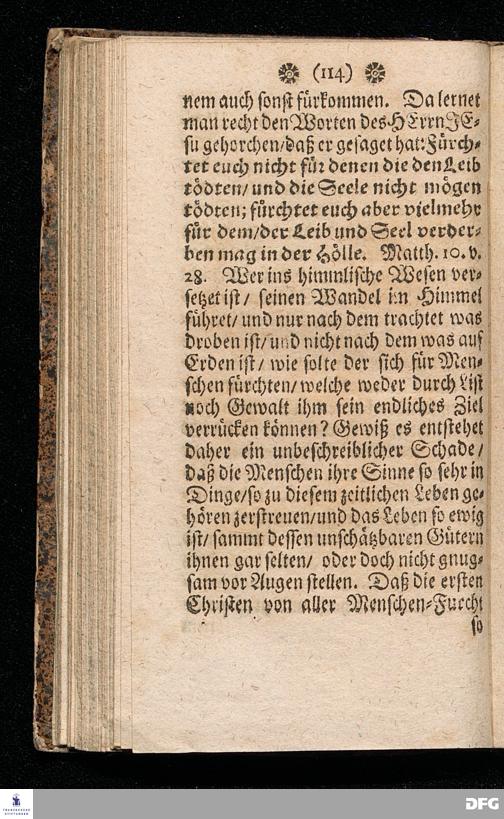 (114)
nem auch sonst fürkommen. Da lernet
man recht den Worten des HErrn JE-
su gehorchen/daß er gesaget hat: Fürch-
tet euch nicht für denen die den Leib
tödten/ und die Seele nicht mögen
tödten; fürchtet euch aber vielmehr
für dem/der Leib und Seel verder-
ben mag in der Hölle. Matth. 10. v.
28. Wer ins himmlische Wesen ver-
setzet ist/ seinen Wandel im Himmel
führet/ und nur nach dem trachtet was
droben ist/ und nicht nach dem was auf
Erden ist/ wie solte der sich für Men-
schen fürchten/ welche weder durch List
noch Gewalt ihm sein endliches Ziel
verrücken können? Gewiß es entstehet
daher ein unbeschreiblicher Schade/
daß die Menschen ihre Sinne so sehr in
Dinge/so zu diesem zeitlichen Leben ge-
hören zerstreuen/und das Leben so ewig
ist/ sammt dessen unschätzbaren Gütern
ihnen gar selten/ oder doch nicht gnug-
sam vor Augen stellen. Daß die ersten
Christen von aller Menschen-Furcht
so
DFG